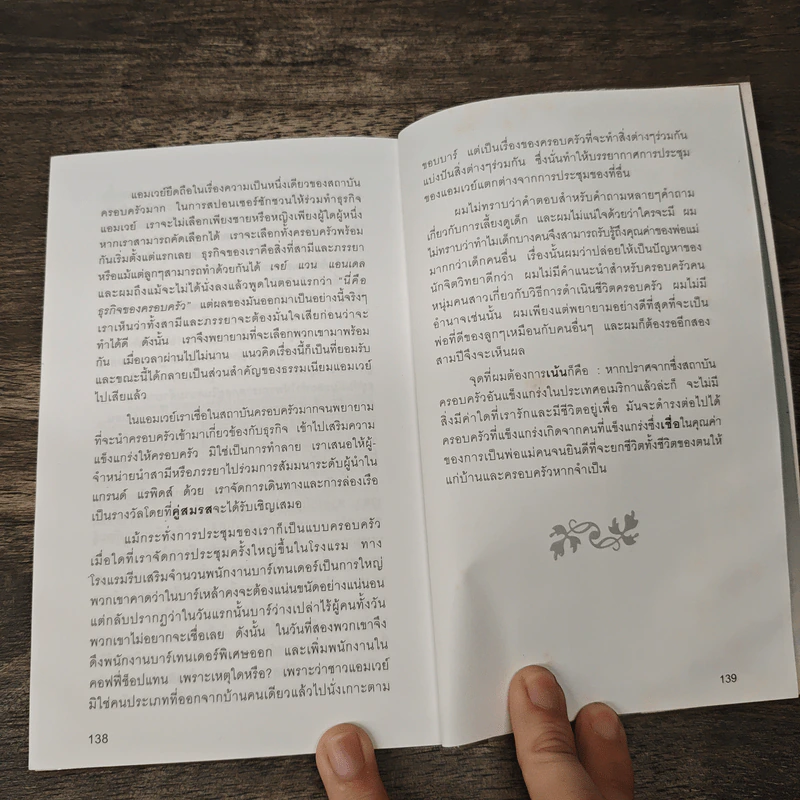 แอมเวย์ยึดถือในเรื่องความเป็นหนึ่งเดียวของสถาบัน
ครอบครัวมาก ในการสปอนเซอร์ชักชวนให้ร่วมทำธุรกิจ
แอมเวย์ เราจะไม่เลือกเพียงชายหรือหญิงเพียงผู้ใดผู้หนึ่ง
หากเราสามารถคัดเลือกได้ เราจะเลือกทั้งครอบครัวพร้อม
กันเริ่มตั้งแต่แรกเลย ธุรกิจของเราคือสิ่งที่สามีและภรรยา
หรือแม้แต่ลูกๆสามารถทำด้วยกันได้ เจย์ แวน แอนเดล
และผมถึงแม้จะไม่ได้นั่งลงแล้วพูดในตอนแรกว่า “นี่คือ
ธุรกิจของครอบครัว” แต่ผลของมันออกมาเป็นอย่างนี้จริงๆ
เราเห็นว่าทั้งสามีและภรรยาจะต้องมั่นใจเสียก่อนว่าจะ
ทำได้ดี ดังนั้น เราจึงพยายามที่จะเลือกพวกเขามาพร้อม
กัน เมื่อเวลาผ่านไปไม่นาน แนวคิดเรื่องนี้ก็เป็นที่ยอมรับ
และขณะนี้ได้กลายเป็นส่วนสำคัญของธรรมเนียมแอมเวย์
ไปเสียแล้ว
ในแอมเวย์เราเชื่อในสถาบันครอบครัวมากจนพยายาม
ที่จะนำครอบครัวเข้ามาเกี่ยวข้องกับธุรกิจ เข้าไปเสริมความ
แข็งแกร่งให้ครอบครัว มิใช่เป็นการทำลาย เราเสนอให้ผู้-
จำหน่ายนำสามีหรือภรรยาไปร่วมการสัมมนาระดับผู้นำใน
แกรนด์ แรพิดส์ ด้วย เราจัดการเดินทางและการล่องเรือ
เป็นรางวัลโดยที่คู่สมรสจะได้รับเชิญเสมอ
แม้กระทั่งการประชุมของเราก็เป็นแบบครอบครัว
เมื่อใดที่เราจัดการประชุมครั้งใหญ่ขึ้นในโรงแรม ทาง
โรงแรมรีบเสริมจำนวนพนักงานบาร์เทนเดอร์เป็นการใหญ่
พวกเขาคาดว่าในบาร์เหล้าคงจะต้องแน่นขนัดอย่างแน่นอน
แต่กลับปรากฏว่าในวันแรกนั้นบาร์ว่างเปล่าไร้ผู้คนทั้งวัน
พวกเขาไม่อยากจะเชื่อเลย ดังนั้น ในวันที่สองพวกเขาจึง
ดึงพนักงานบาร์เทนเดอร์พิเศษออก และเพิ่มพนักงานใน
คอฟฟี่ช็อปแทน เพราะเหตุใดหรือ? เพราะว่าชาวแอมเวย์
มิใช่คนประเภทที่ออกจากบ้านคนเดียวแล้วไปนั่งเกาะตาม
138
ขอบบาร์ แต่เป็นเรื่องของครอบครัวที่จะทำสิ่งต่างๆร่วมกัน
แบ่งปันสิ่งต่างๆร่วมกัน ซึ่งนั่นทำให้บรรยากาศการประชุม
ของแอมเวย์แตกต่างจากการประชุมของที่อื่น
ผมไม่ทราบว่าคำตอบสำหรับคำถามหลายๆคำถาม
เกี่ยวกับการเลี้ยงดูเด็ก และผมไม่แน่ใจด้วยว่าใครจะมี ผม
ไม่ทราบว่าทำไมเด็กบางคนจึงสามารถรับรู้ถึงคุณค่าของพ่อแม่
มากกว่าเด็กคนอื่น เรื่องนั้นผมว่าปล่อยให้เป็นปัญหาของ
นักจิตวิทยาดีกว่า ผมไม่มีคำแนะนำสำหรับครอบครัวคน
หนุ่มคนสาวเกี่ยวกับวิธีการดำเนินชีวิตครอบครัว ผมไม่มี
อำนาจเช่นนั้น ผมเพียงแต่พยายามอย่างดีที่สุดที่จะเป็น
พ่อที่ดีของลูกๆเหมือนกับคนอื่นๆ และผมก็ต้องรออีกสอง
สามปีจึงจะเห็นผล
จุดที่ผมต้องการเน้นก็คือ : หากปราศจากซึ่งสถาบัน
ครอบครัวอันแข็งแกร่งในประเทศอเมริกาแล้วล่ะก็ จะไม่มี
สิ่งมีค่าใดที่เรารักและมีชีวิตอยู่เพื่อ มันจะดำรงต่อไปได้
ครอบครัวที่แข็งแกร่งเกิดจากคนที่แข็งแกร่งซึ่งเชื่อในคุณค่า
ของการเป็นพ่อแม่คนจนยินดีที่จะยกชีวิตทั้งชีวิตของตนให้
แก่บ้านและครอบครัวหากจำเป็น
139